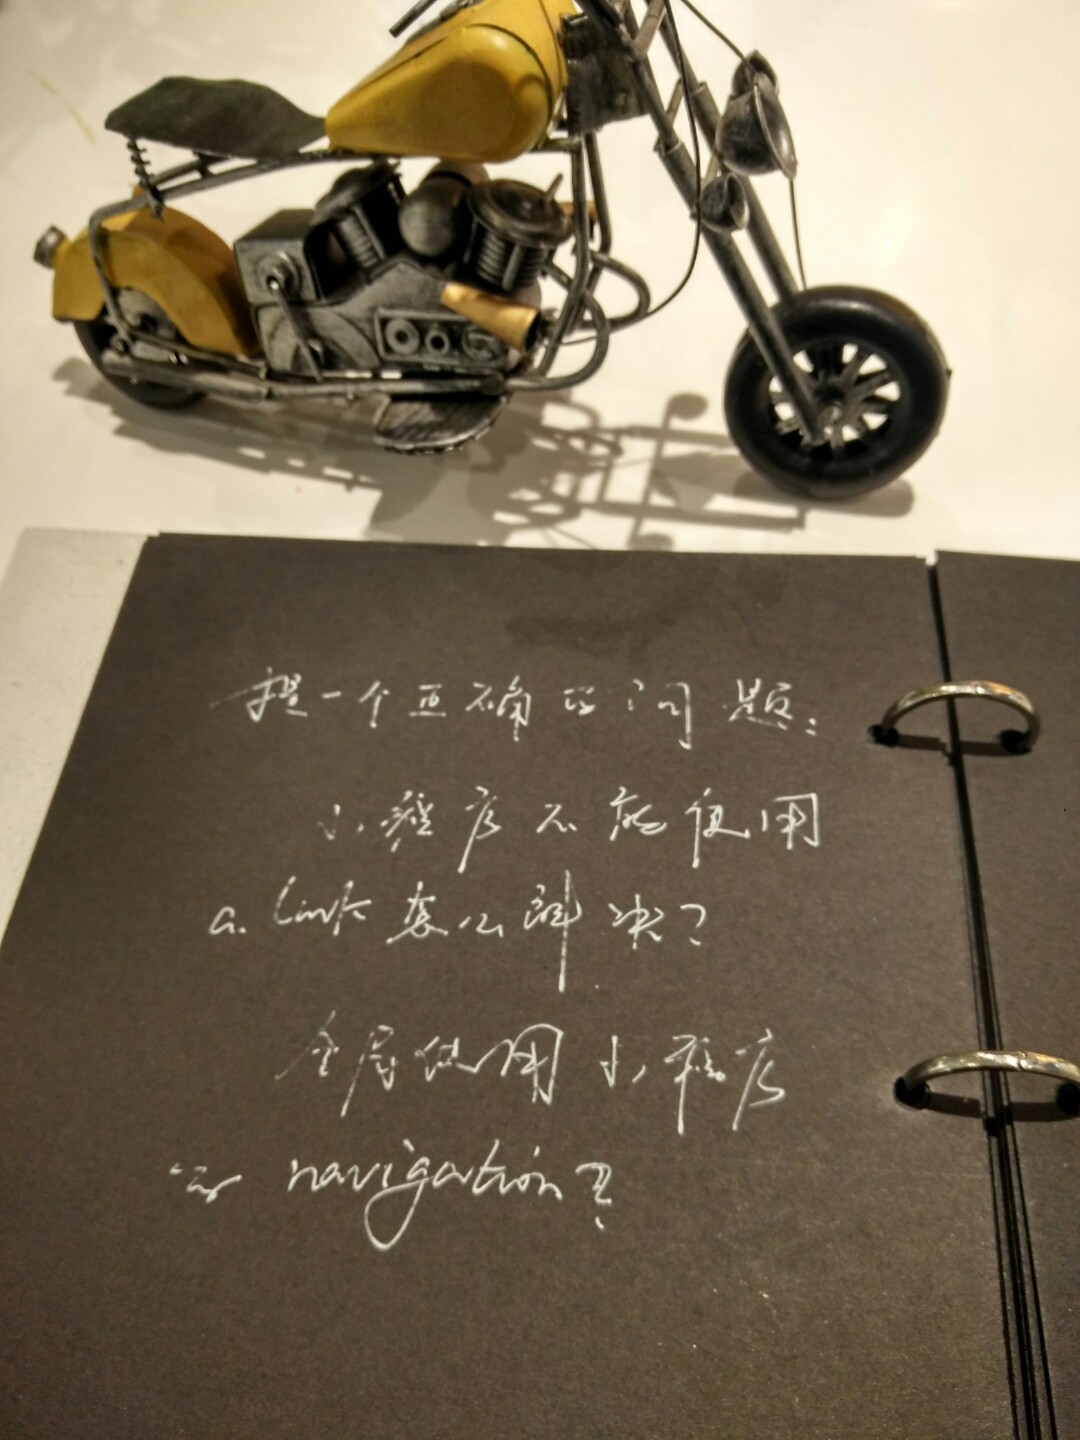 提一个正确的问题:
小程序不能使用
a. link 怎么解决?
全局使用小程序
的 navigation?